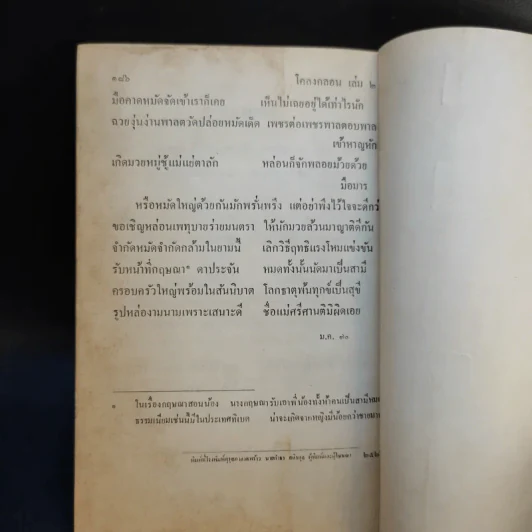 ๑๘๖ โคลงกลอน เล่ม ๒
มื้อคาดหมัดจัดเข้าเราก็เคย เห็นไม่เลยอยู่ได้เท่าไรนัก
ฉวยงุ่นง่านพาลตวัดปล่อยหมัดเด็ด เพชรต่อเพชรพาลตอบพาล
เข้าหาญหัก
เกิดมวยหมู่ชู้แม่แย่ตาลัก หล่อนก็จักพลอยม้วยด้วย
มือมาร
หรือหมัดใหญ่ด้วยกันมักพรั่นพรึง แต่อย่าพึงไว้ใจจะดีกว่
ขอเชิญหล่อนเพทุบายร่ายมนตรา ให้นักมวยล้วนมาญาติดีกัน
จำกัดหมัดจำกัดกล้ามในยามนี้ เลิกวิธีฤทธิแรงโหมแข่งขัน
รับหน้าที่กฤษณา* ดาประจัน หมดทั้งนั้นนัดมาเป็นสามี
ครอบครัวใหญ่พร้อมในสันนิบาต โลกธาตุพ้นทุกข์เป็นสุขี
รูปหล่องามนามเพราะเสนาะดี ชื่อแม่ศรีศานติมิผิดเอย
ม.ค. ๙๐
* ในเรื่องกฤษณาสอนน้อง นางกฤษณารับเอาพี่น้องทั้งห้าคนเป็นสามีหมด
ธรรมเนียมเช่นนี้มีในประเทศทิเบต น่าจะเกิดจากหญิงมีน้อยกว่าชายมา